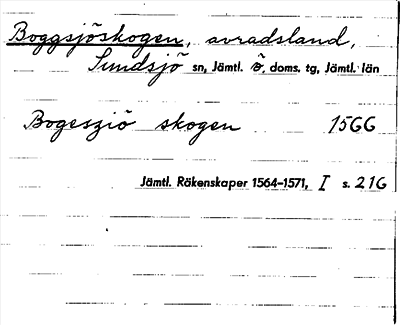 Boggsjöskogen, avradsland,
Sundsjö sn, Jämtl. ö. doms. tg, Jämtl. län
Bogeszjö skogen 1566
Jämtl. Räkenskaper 1564–1571, I s. 216